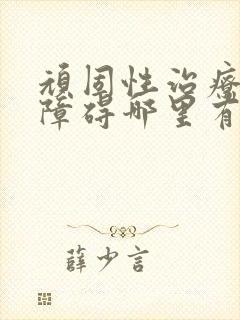 頑固性治療
障碍哪里有
薛少言